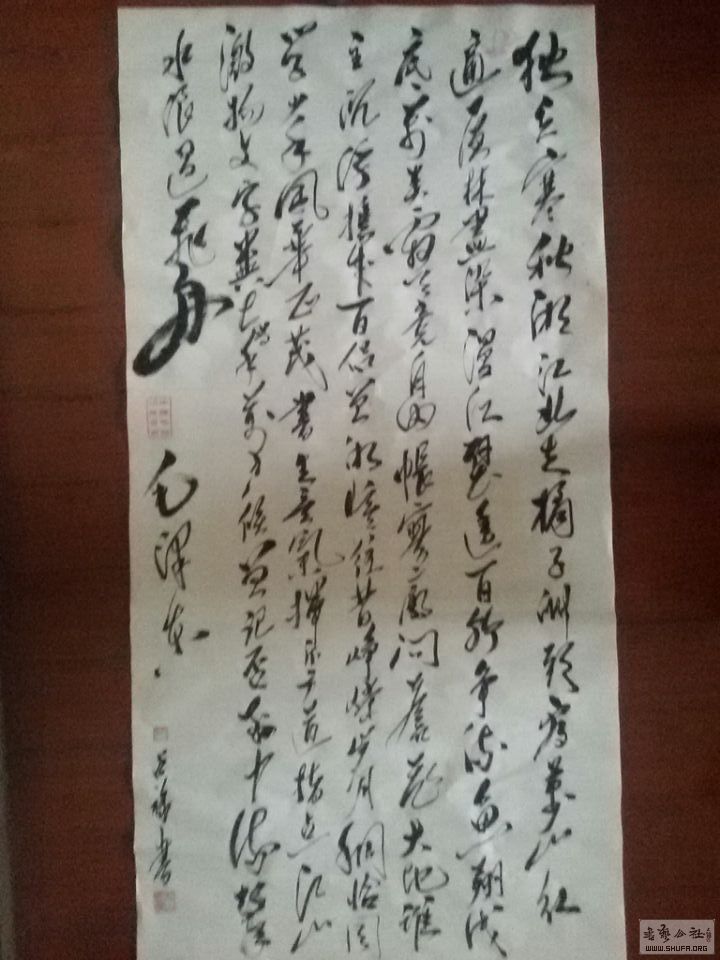 独立寒秋湘江北去橘子洲頭看萬山红
遍層林盡染漫江碧透百舸争流魚翔浅
底萬类霜天竞自由悵寥廓问蒼茫大地谁
主沉浮携来百侣曾游憶往昔峥嵘岁月稠恰同
学少年風華正茂書生意氣揮斥方遒指点江山
激扬文字粪土当年萬户侯曾记否到中流击
水浪遏飛舟
毛泽东
書
书艺公社
WWW.SHUFA.ORG